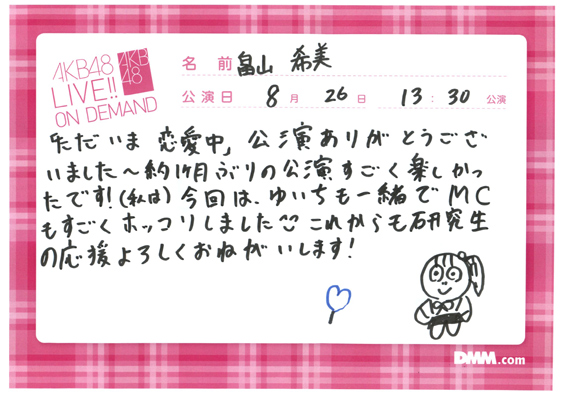 AKB48
LIVE!!
ON DEMAND
AKB
48
名 前 畠山 希美
公演日 8月 26日 13:30 公演
「ただいま 恋愛中」公演ありがとうござい
ました〜約1ヶ月ぶりの公演すごく楽しかっ
たです!(私は)今回は、ゆいちも一緒でMC
もすごくホッコリしました これからも研究生
の応援よろしくおねがいします!
DMM.com